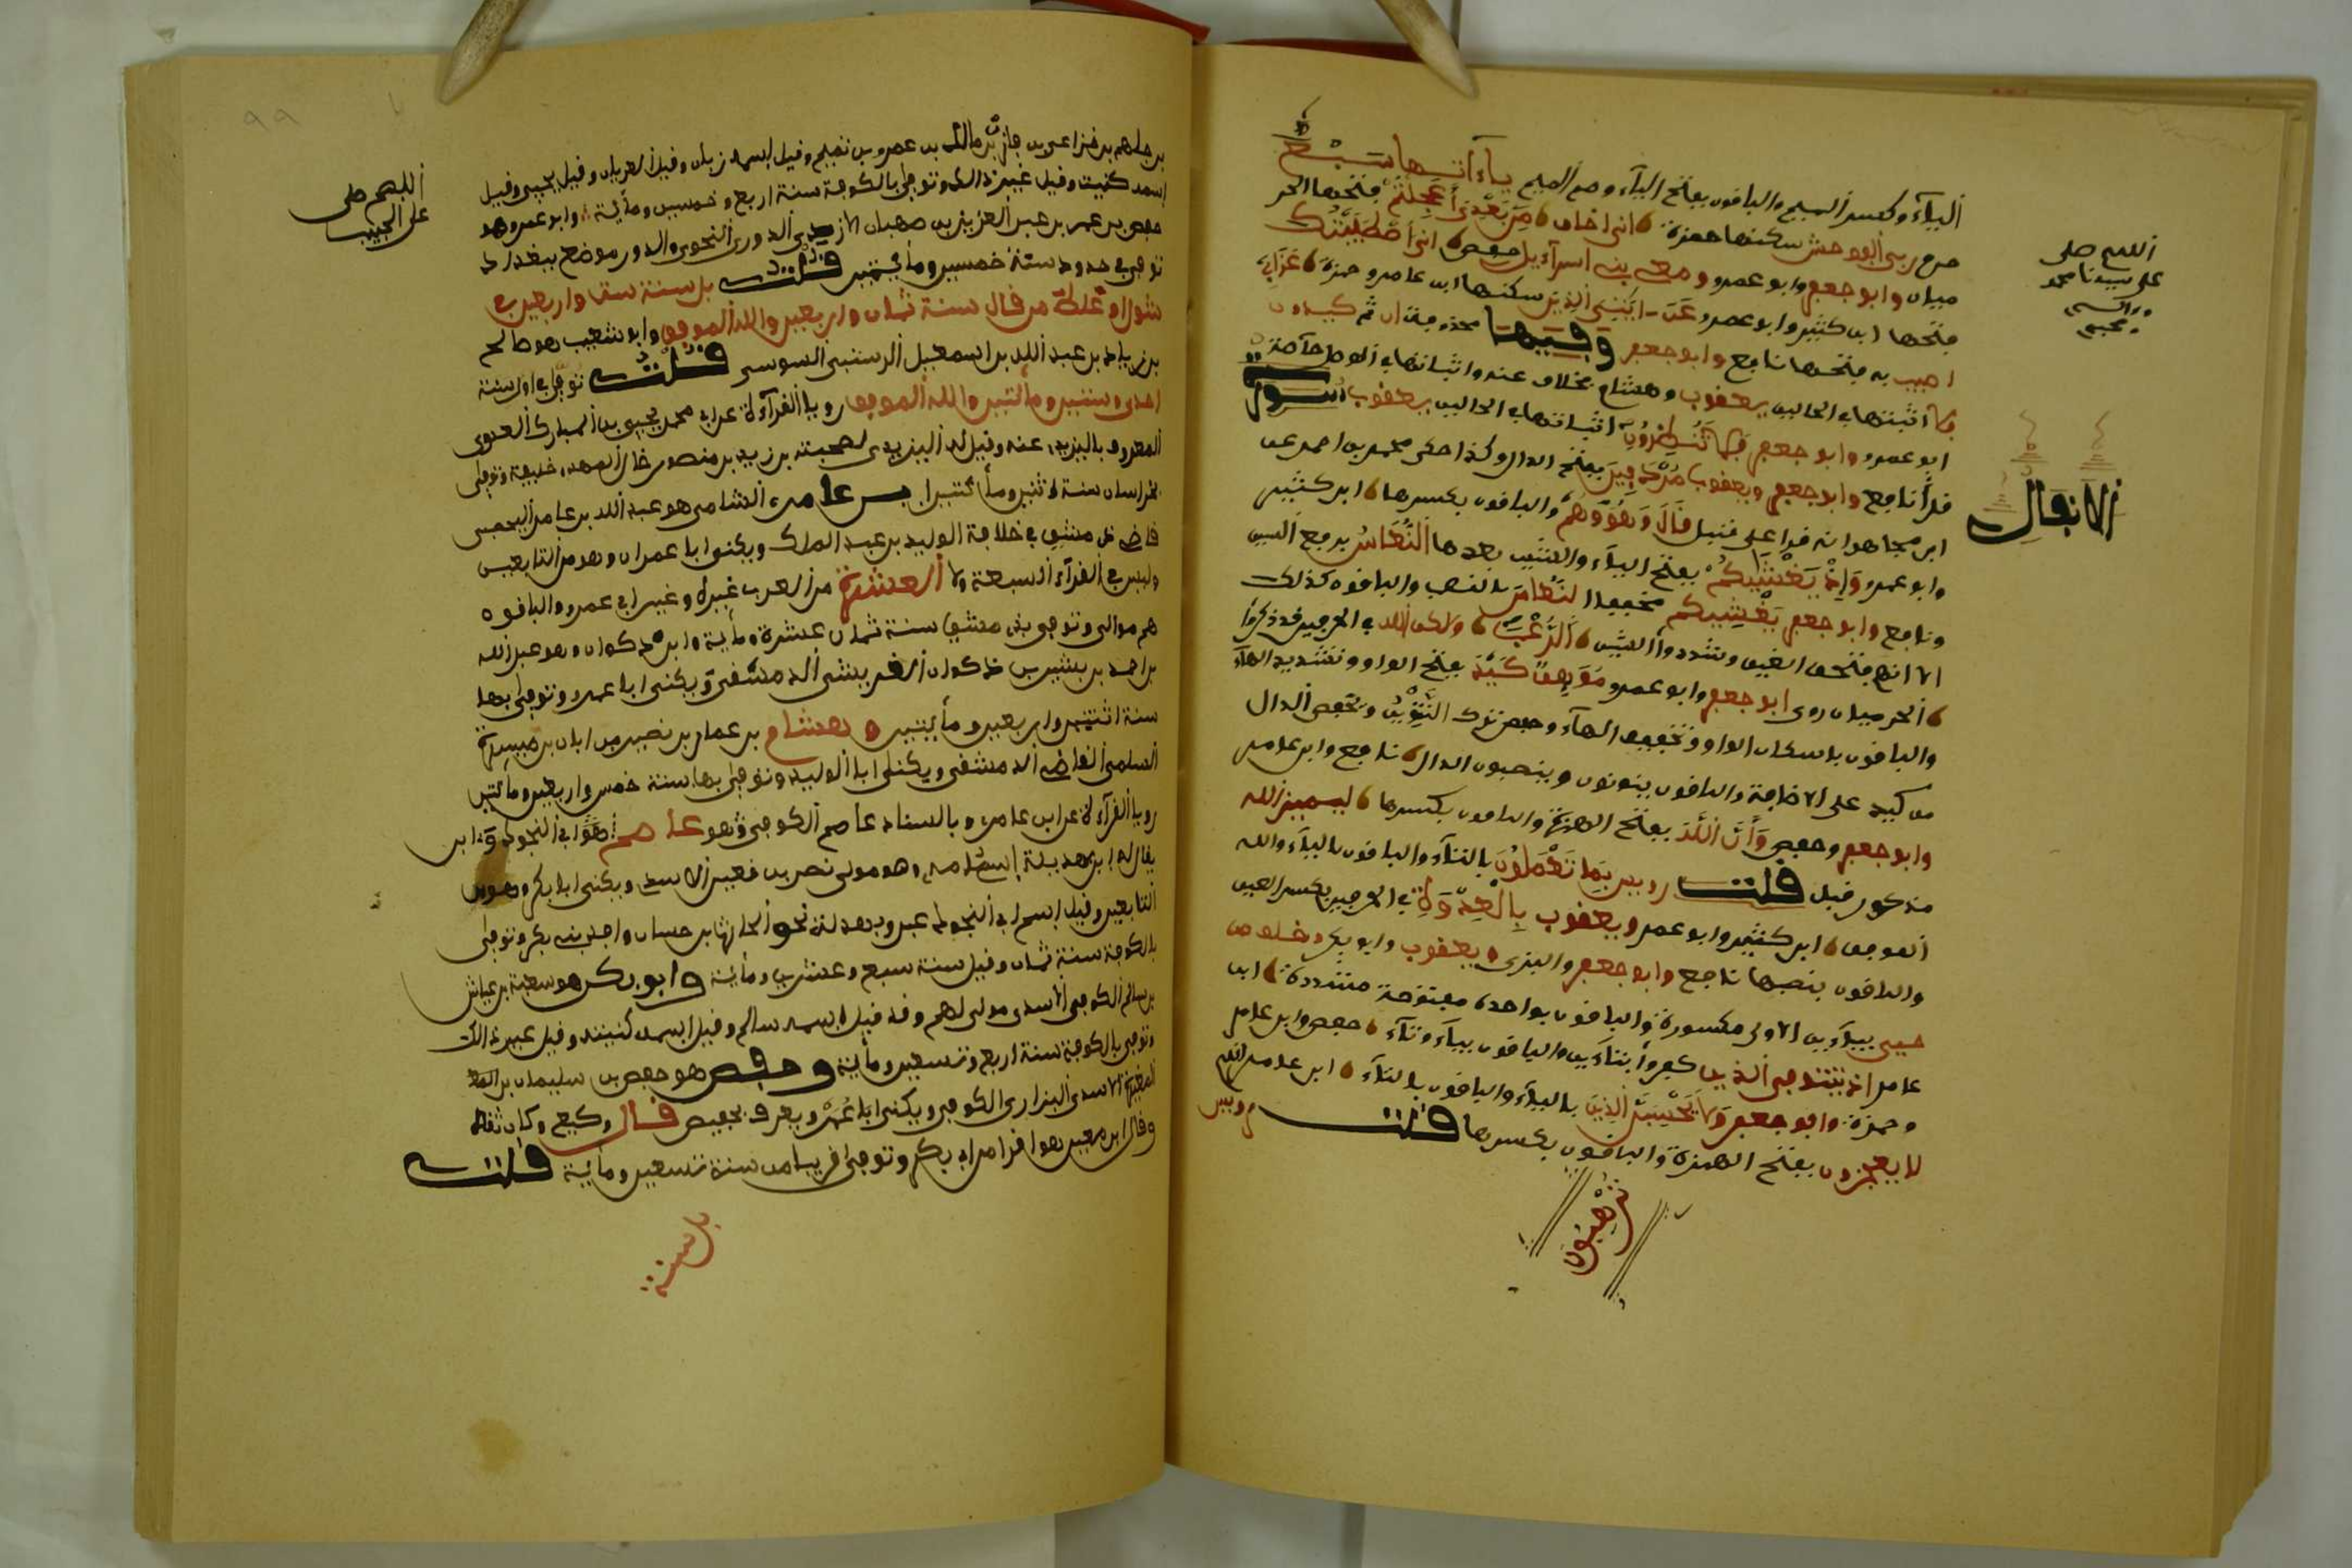 اليآء وكسر الميم والباقون بفتح اليآء وضم الميم ياءاتها سبع
حرم ربي الفوحش سكنها حمزة اني اخاف من بعدي أعجلتم فتحها الحر
ميان وابو جعفر وابو عمرو ومعي بني اسرآءيل حفص اني اصطفيتك
فتحها ابن كثير وابو عمرو عن ءايتي الذين سكنها ابن عامر وحمزة عذابي
اصيب به فتحها نافع وابو جعفر وفيها محذوفتان ثم كيدون
اثبتها في الحالين يعقوب وهشام بخلاف عنه واثبتها في الوصل خآصة
ابو عمرو وابو جعفر فلا تنظرون اثبتها في الحالين يعقوب سورة
الانفال
اللهم صل
على سيدنا محمد
وءاله
وصحبه
قرأ نافع وابو جعفر ويعقوب مردفين بفتح الدال وكذا حكى محمد بن احمد عن
ابن مجاهد انه قرا على قنبل قال وهو وهم والباقون بكسرها ابن كثير
وابو عمرو إذ يغشيكم بفتح اليآء والشين بعدها النعاس برفع السين
ونافع وابو جعفر يغشيكم مخففا النعاس بالنصب والباقون كذلك
الا انهم فتحوا الغين وشددوا الشين الرعب ولكن الله في الحرفين قد ذكرا
الحرميان روى ابو جعفر وابو عمرو موهن كيد بفتح الواو وتشديد الهآء
والباقون باسكان الواو وتخفيف الهآء وحفص بترك التنوين وبخفض الدال
من كيد على الاضافة والباقون ينونون وينصبون الدال نافع وابن عامر
وابو جعفر وحفص وأن الله بفتح الهمزة والباقون بكسرها ليميز الله
مذكور قبل قلت رويس بما تعملون بالتآء والباقون باليآء والله
الموفق ابن كثير وابو عمرو ويعقوب بالعدوة في الحرفين بكسر العين
والباقون بضمها نافع وابو جعفر والبزي ويعقوب وابو بكر وخلف من
حيي بيآءين الاولى مكسورة والباقون بواحدة مفتوحة مشددة ابن
عامر اذ تتوفى الذين كفروا بتآءين والباقون بيآء وتآء حفص وابن عامر
وحمزة وابو جعفر ولا يحسبن الذين باليآء والباقون بالتآء ابن عامر انهم
لا يعجزون بفتح الهمزة والباقون بكسرها قلت رويس
ترهبون
٩٩
بن جلهم بن خزاعي بن مازن بن مالك بن عمرو بن تميم وقيل اسمه زبان وقيل العريان وقيل يحيى وقيل
اسمه كنيته وقيل غير ذالك وتوفي بالكوفة سنة اربع وخمسين ومائة وابو عمرو هو
اللهم صل
على الحبيب
حفص بن عمر بن عبد العزيز بن صهبان الازدي الدوري النحوي والدور موضع ببغداد
توفي في حدود سنة خمسين ومائتين قلت بل سنة ست واربعين في
شوال وغلط من قال سنة ثمان واربعين والله الموفق وابو شعيب هو صالح
بن زياد بن عبد الله بن اسمعيل الرستبي السوسي قلت توفي في اول سنة
احدى وستين ومائتين والله الموفق رويا القرآءة عن ابي محمد يحيى بن المبارك العدوي
المعروف باليزيدي عنه وقيل له اليزيدي لصحبته يزيد بن منصور خال المهدي خليفة وتوفي
بخراسان سنة اثنين ومائتين ابن عامر الشامي هو عبد الله بن عامر اليحصبي
قاضي دمشق في خلافة الوليد بن عبد الملك ويكنى ابا عمران وهو من التابعين
وليس في القرآء السبعة ولا العشرة من العرب غيره وغير ابي عمرو والباقون
هم موالي وتوفي بدمشق سنة ثمان عشرة ومائة وابن ذكوان وهو عبد الله
بن احمد بن بشير بن ذكوان القريشي الدمشقي ويكنى ابا عمرو وتوفي بها
سنة اثنتين واربعين ومائتين وهشام بن عمار بن نصير بن ابان بن ميسرة
السلمي القاضي الدمشقي ويكنى ابا الوليد وتوفي بها سنة خمس واربعين ومائتين
رويا القرآءة عن ابن عامر بالسناد عاصم الكوفي وهو عاصم ابن ابي النجود
يقال له ابن بهدلة وهو مولى نصر بن قعين الاسدي ويكنى ابا بكر وهو من
التابعين وقيل اسم ابي النجود عبد وبهدلة الحارث بن حسان وافد بني بكر وتوفي
بالكوفة سنة ثمان وقيل سنة سبع وعشرين ومائة وابو بكر هو شعبة بن عياش
بن سالم الكوفي الاسدي مولى لهم وقد قيل اسمه سالم وقيل اسمه كنيته وقيل غير ذالك
وتوفي بالكوفة سنة اربع وتسعين ومائة وحفص هو حفص بن سليمان بن
المغيرة الاسدي البزازي الكوفي ويكنى ابا عمر ويعرف بحفيص قال وكيع وكان ثقة
وقال ابن معين هو اقرا من ابي بكر وتوفي قريبا من سنة تسعين ومائة قلت
بل سنة